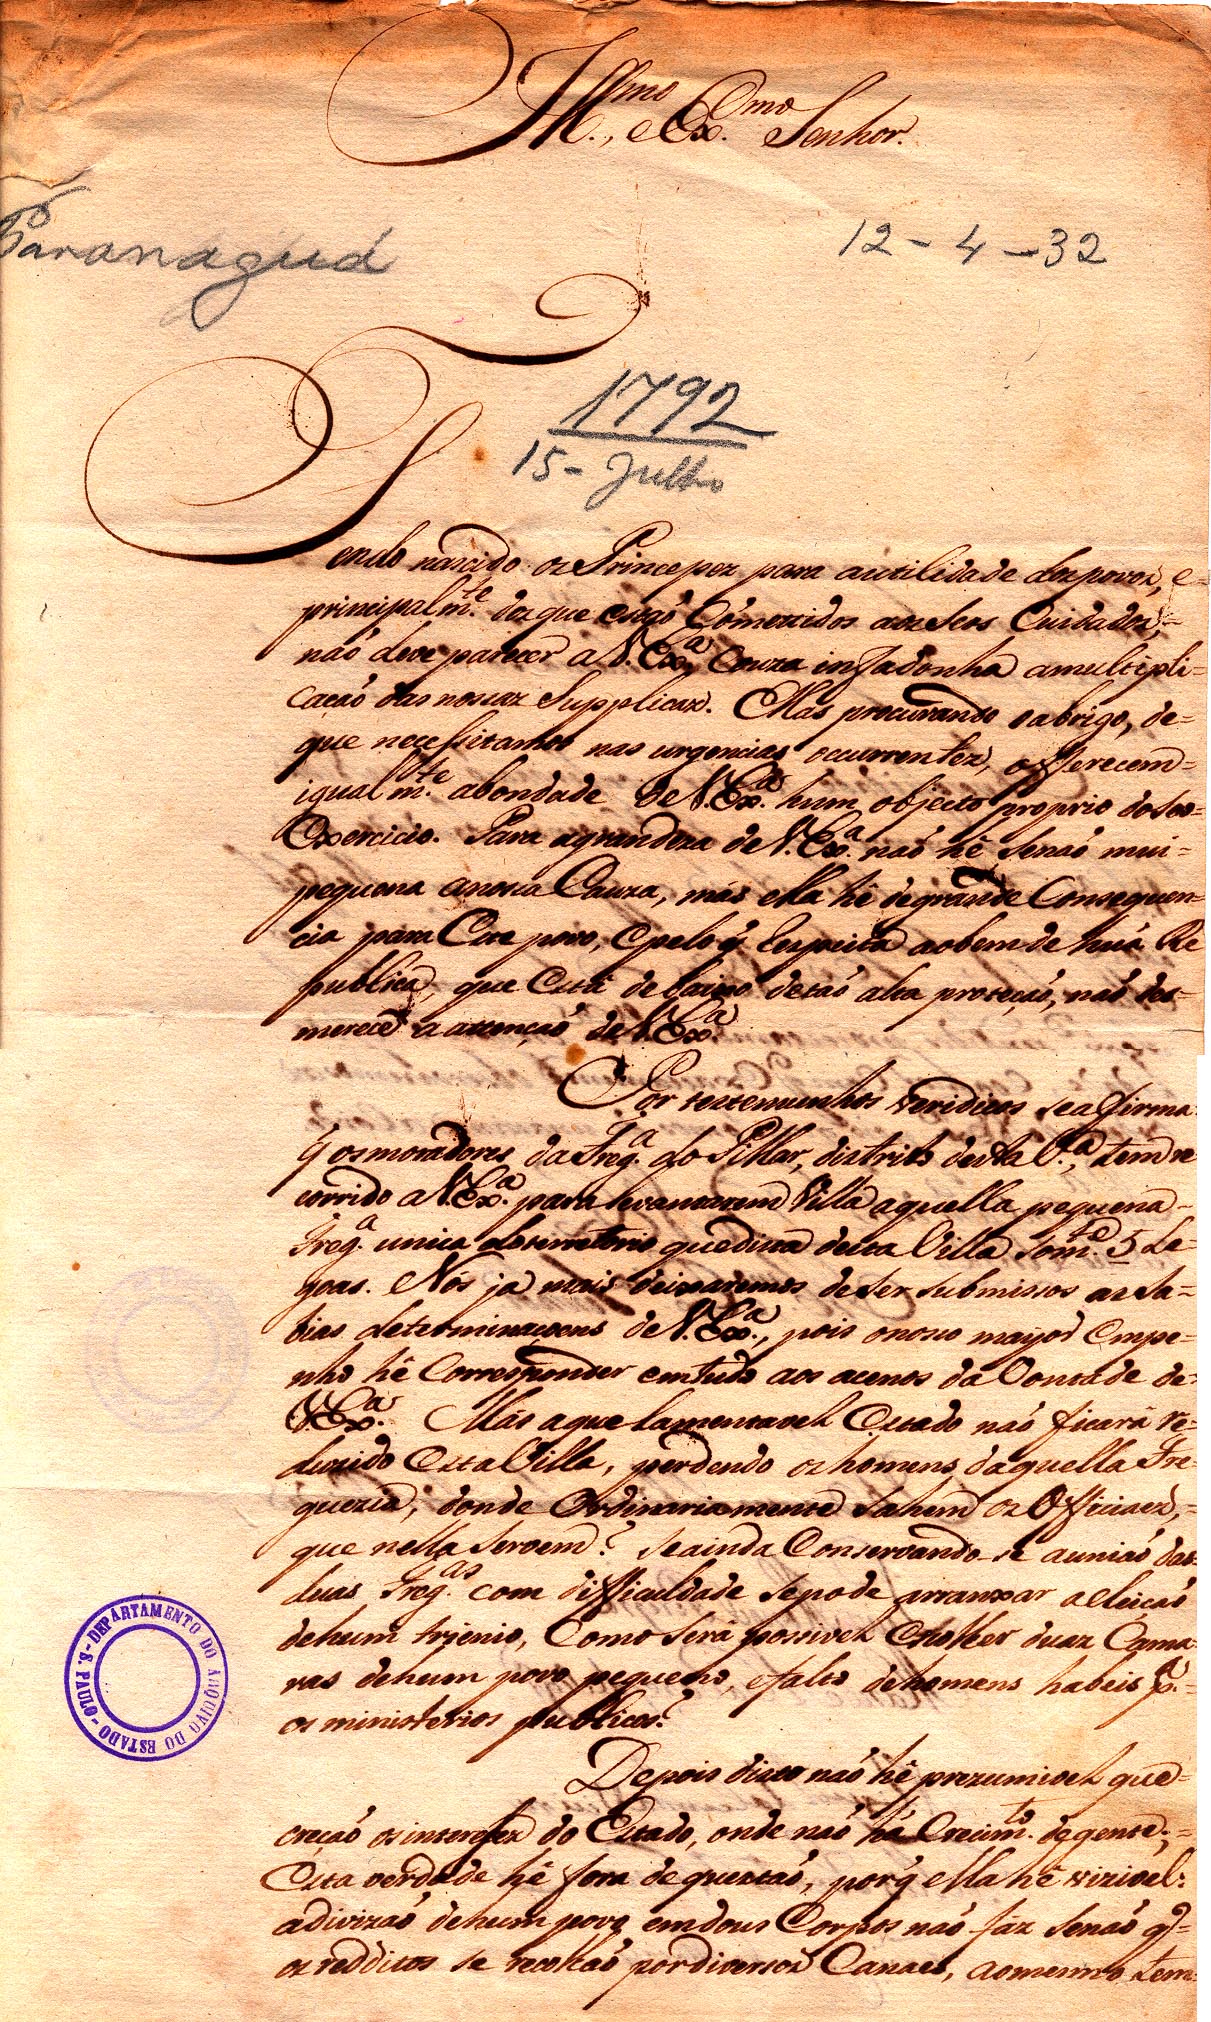 Ill.mo, e Ex.mo Senhor.
Paranaguá
12-4-32
1792
15-Julho
Sendo nascido os Princepez para autilidade dozpovoz, e=
principalm.te dozque estaõ Cómettidos aoz Seos Cuidadoz,=
náo deve parecer a V. Ex.a Couza infadonha amultipli=
cacáo das nossaz Supplicaz. Mas procurando oabrigo, de=
que necessitamos nas urgencias occurrentez, offerecem=
igualm.te abondade de V. Ex.a hum objecto proprio doseo=
Exercicio. Para agrandeza de V. Ex.a náo hê senáo mui=
pequena anossa Cauza, más ella hê degrande Consequen=
cia para Este povo, Epelo q̃ respeita aobem de huá Re
publica, que Está debaixo detáo alta proteçáo, náo des=
merece a attençáo de V. Ex.a
Por testemunhos veridicos seafirma
q̃ osmoradores da Freg.a do Pillar, distrito desta V.a, tem re
corrido a V. Ex.a para levantarem Villa aquella pequena=
Freg.a unica desterritorio quedista desta Villa Som.te 5 Le=
goas. Nós ja mais deixaremos deser submissos as Sa=
bias determinaçoens de V. Ex.a, pois onosso mayor Empe=
nho hê Corresponder emtudo aos acenos da Vontade de=
V. Ex.a Más aque lamentavel Estado náo ficará re=
duzido Esta Villa, perdendo oshomens daquella Fre=
guezia, donde Ordinariamente sahem oz Officiaez,=
que nella servem? Seainda Conservando-se auniáo das=
duas Freg.as com difficuldade sepode arranxar aeleiçáo
dehum trienio, Como Será possivel Escolher duaz Cama=
ras dehum povo pequeno, efalto dehomens habeis p.a=
os ministerios publicos?
Depois disto náo hê prezumivel que=
creçáo osinteresez do Estado, onde náo há Crecim.to degente;=
Esta verdade hê fora dequestáo, porq̃ ella hê vizivel:
adivizáo dehum povo emdous Corpos náo faz Senáo q̃=
os redditos se recoltáo pordiversos Canaes, aomesmo tem=
DEPARTAMENTO DO ARQUIVO DO ESTADO - S. PAULO